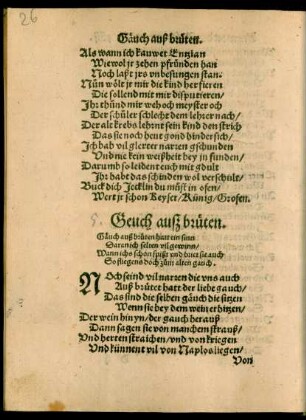 26
Gäuch auß brüten.
Als wann ich kauwet Entzian
Wiewol jr zehen pfründen han
Noch laßt jrs vnbesungen stan.
Nün wölt jr mir die kind her fieren
Die sollend mit mir disputieren/
Ihr thünd mir weh och meyster och
Der schüler schlecht dem lehrer nach/
Der alt krebs lehrnt sein kind den strich
Das sie noch heut gond hinder sich/
Ich hab vil glerter narren gschunden
Vnd nie kein weißheit bey jn funden/
Darumb so leident euch mit gdult
Ihr habt das schinden wol verschult/
Buck dich Jecklin du müst in ofen/
Wert jr schon Keyser/Künig/Grofen.
5. Geuch ausz brüten.
Gäuch auß brüten hatt ein sinn
Daran ich selten vil gewinn/
Wann ichs schon spißt vnd buet sie auch
So fliegens doch zům alten gauch.
Noch seind vil narren die vns auch
Auß brütet hatt der liebe gauch/
Das sind die selben gäuch die sitzen
Wenn sie bey dem wein erhitzen/
Der wein hin yn/der gauch herauß
Dann sagen sie von manchem strauß/
Vnd herten straichen/vnd von kriegen
Vnd künnent vil von Naplos liegen/
Von